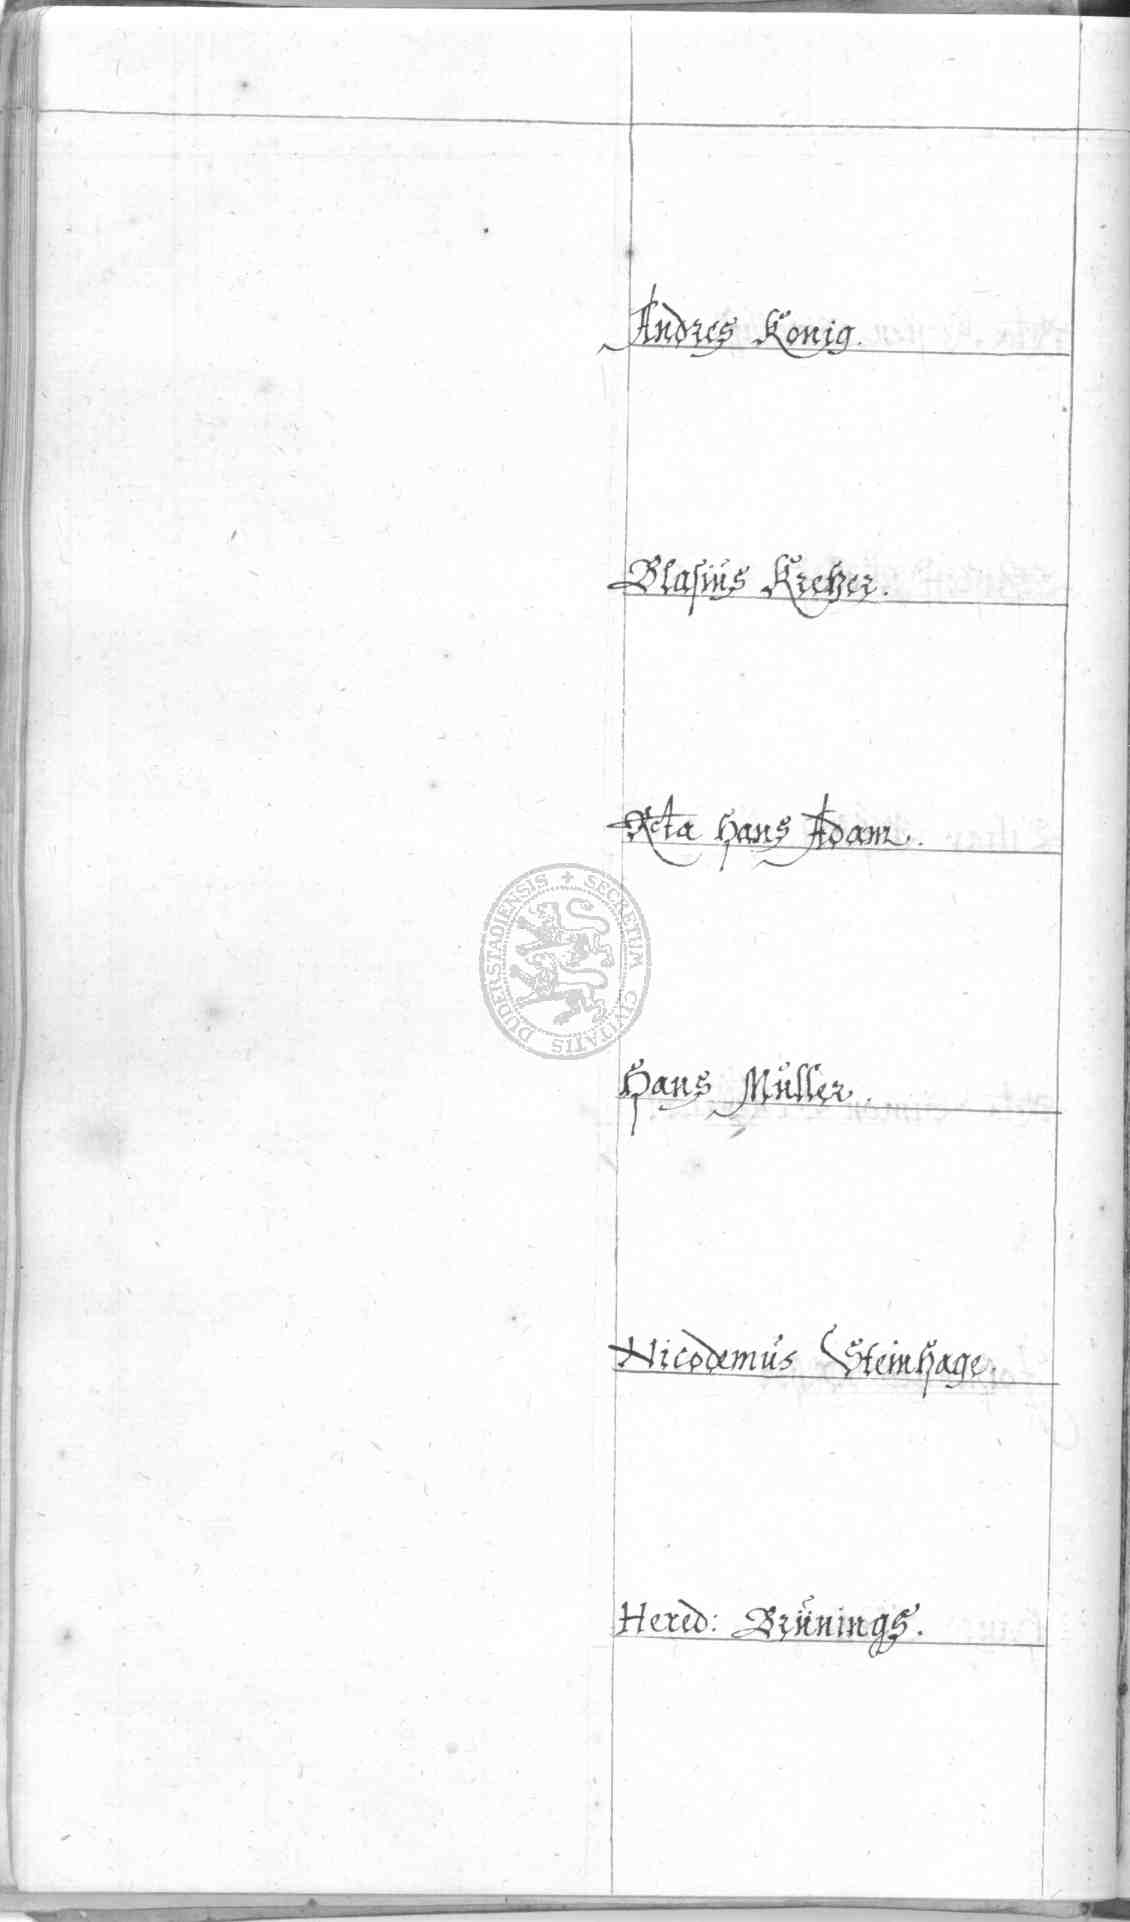 Andres König.
Blasius Kretzer.
Rcta Hans Adam.
SECRETUM CIVITATIS DUDERSTADIENSIS
Hans Müller.
Nicodemus Steinhage.
Hered: Brünings.